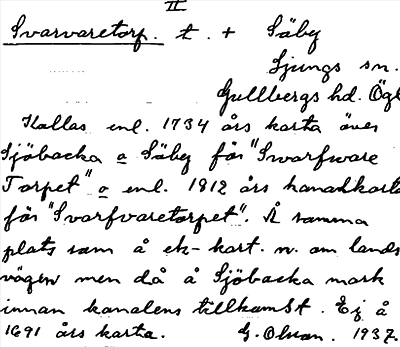 II
Svarvaretorp. t. + Säby
Ljungs sn.
Gullbergs hd. Ögl
Kallas enl. 1734 års karta över
Sjöbacka o Säby för "Swarfware
Torpet" o enl. 1812 års kanalkarta
för "Svarfvaretorpet". Å samma
plats som å ek-kart. n. om lands
vägen men då å Sjöbacka mark
innan kanalens tillkomst. Ej å
1691 års karta. G. Olsson. 1937.